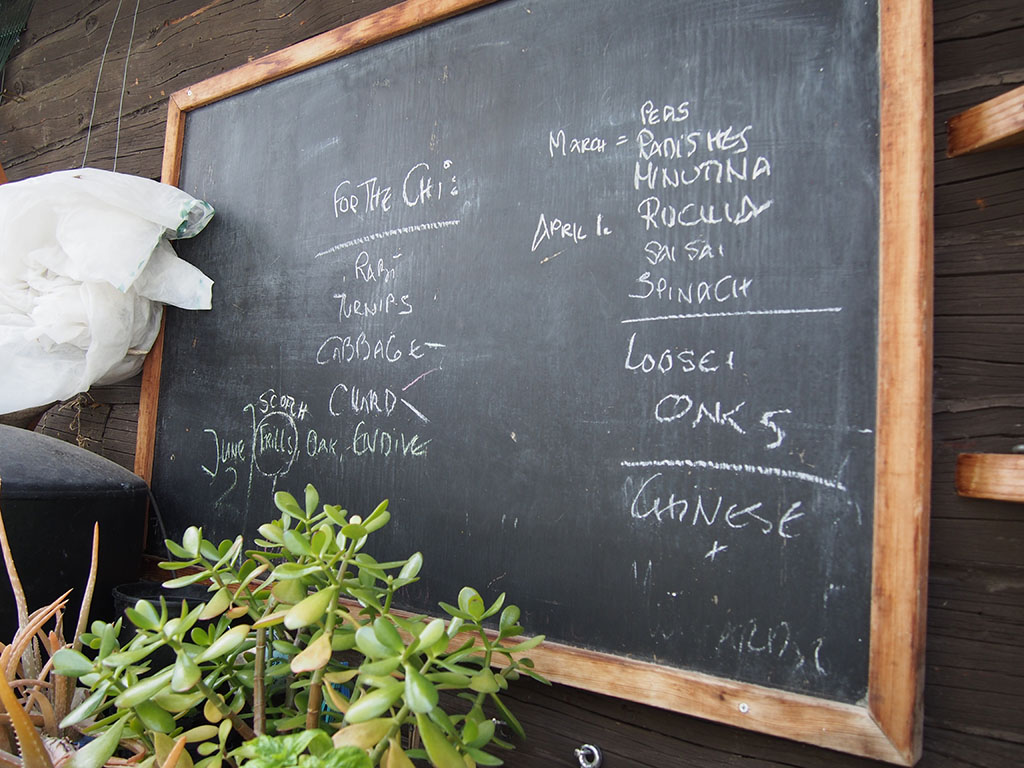 FOR THE CHI:
RABI
TURNIPS
CABBAGE
CHARD
SCOTCH
JUNE FRILLS, OAK ENDIVE
PEAS
MARCH = RADISHES
MINUTINA
APRIL 1. RUCULA
SAI SAI
SPINACH
LOOSE
OAK 5
CHINESE
+